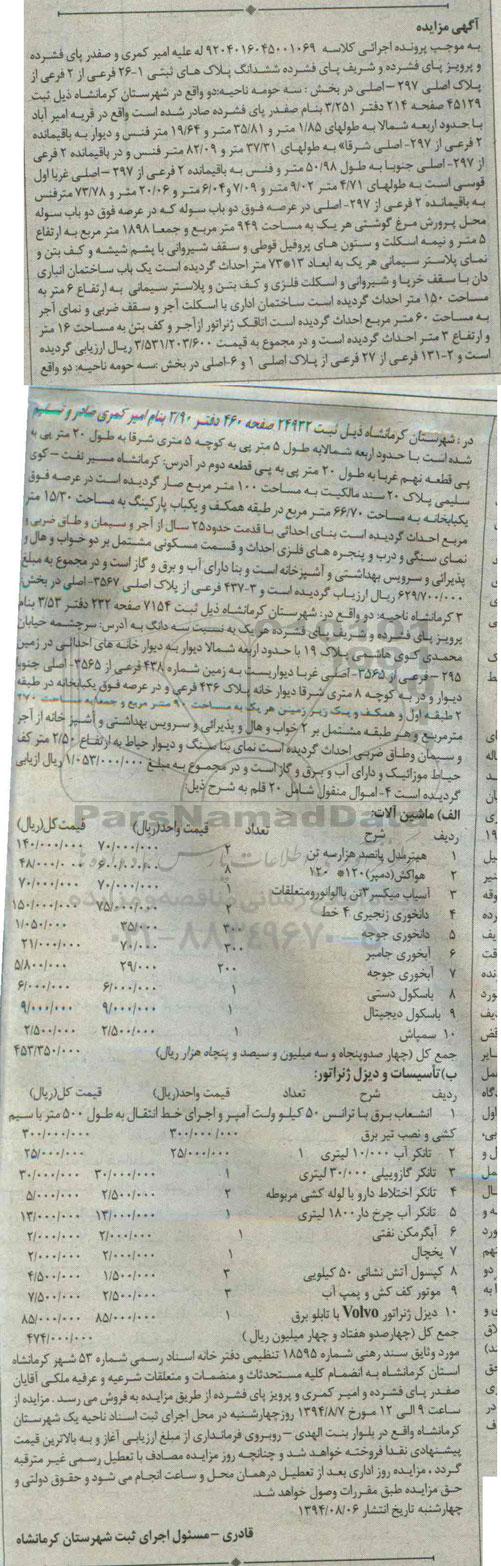 آگهی مزایده
به موجب پرونده اجرائی کلاسه ۹۲۰۴۰۱۶۰۴۵۰۰۱۰۶۹ له علیه امیر کمری و صفدر پای فشرده
و پرویز پای فشرده و شریف پای فشرده ششدانگ پلاک های ثبتی ۱-۲۶ فرعی از ۲ فرعی از
پلاک اصلی ۲۹۷ – اصلی در بخش : سه حومه ناحیه:دو واقع در شهرستان کرمانشاه ذیل ثبت
۴۵۱۲۹ صفحه ۲۱۴ دفتر ۳/۲۵۱ بنام صفدر پای فشرده صادر شده است واقع در قریه امیر آباد
با حدود اربعه شمالا به طولهای ۱/۸۵ متر و ۳۵/۸۱ متر و ۱۹/۶۴ متر فنس و دیوار به باقیمانده
۲ فرعی از ۲۹۷- اصلی شرقا» به طولهای ۳۷/۳۱ متر و ۸۲/۰۹ متر فنس و در باقیمانده ۲ فرعی
از ۲۹۷- اصلی جنوبا به طول ۵۰/۹۸ متر و فنس به باقیمانده ۲ فرعی از ۲۹۷ –اصلی غربا اول
قوسی است به طولهای ۴/۷۱ متر ۹/۰۲ متر و ۷/۰۹ و۶/۰۴ متر و ۲۰/۰۶ متر و ۷۳/۷۸ مترفنس
به باقیمانده ۲ فرعی از ۲۹۷- اصلی در عرصه فوق دو باب سوله که در عرصه فوق دو باب سوله
محل پرورش مرغ گوشتی هر یک به مساحت ۹۴۹ متر مربع و جمعا ۱۸۹۸ متر مربع به ارتفاع
۵ متر و نیمه اسکلت و ستون های پروفیل قوطی و سقف شیروانی با پشم شیشه و کف بتن و
نمای پلاستر سیمانی هر یک به ابعاد ۱۳*۷۳ متر احداث گردیده است یک باب ساختمان انباری
دان با سقف خرپا و شیروانی و اسکلت فلزی و کف بتن و پلاستر سیمانی به ارتفاع ۶ متر به
مساحت ۱۵۰ متر احداث گردیده است ساختمان اداری با اسکلت آجر و سقف ضربی و نمای آجر
به مساحت ۶۰ متر مربع احداث گردیده است اتاقک ژنراتور ازآجر و کف بتن به مساحت ۱۶ متر
و ارتفاع ۳ متر احداث گردیده است و در مجموع به قیمت ۳/۵۳۱/۲۰۳/۶۰۰ ریال ارزیابی گردیده
است و ۲-۱۳۱ فرعی از ۲۷ فرعی از پلاک اصلی ۱ و ۶-اصلی در بخش :سه حومه ناحیه: دو واقع
در : شهرستان کرمانشاه ذیل ثبت ۲۴۹۳۲ صفحه ۴۶۰ دفتر ۳/۹۰ بنام امیر کمری صادر و تسلیم
شده است با حدود اربعه شمالابه طول ۵ متر پی به کوچه ۵ متری شرقا به طول ۲۰ متر پی به
پی قطعه نهم غربا به طول ۲۰ متر پی به پی قطعه دوم در آدرس: کرمانشاه مسیر نفت – کوی
سلیمی پلاک ۲۰ سند مالکیت به مساحت ۱۰۰ متر مربع صار گردیده است در عرصه فوق
یکبابخانه به مساحت ۶۶/۷۰ متر مربع در طبقه همکف و یکباب پارکینگ به مساحت ۱۵/۳۰ متر
مربع احداث گردیده است بنای احداثی با قدمت حدود۲۵ سال از آجر و سیمان و طاق ضربی و
نمای سنگی و درب و پنجره های فلزی احداث و قسمت مسکونی مشتمل بر دو خواب و هال و
پذیرائی و سرویس بهداشتی و آشپزخانه است و بنا دارای آب و برق و گاز است و در مجموع به مبلغ
۶۲۹/۷۰۰/۰۰۰ ریال ارزیاب گردیده است و ۳-۴۳۷ فرعی از پلاک اصلی ۳۵۶۷-اصلی در بخش
۳ کرمانشاه ناحیه: دو واقع در: شهرستان کرمانشاه ذیل ثبت ۷۱۵۴ صفحه ۲۳۲ دفتر ۳/۵۳ بنام
پرویز پای فشرده و شریف پای فشرده هر یک به نسبت سه دانگ به آدرس: سرچشمه خیابان
محمدی کوی هاشمی پلاک ۱۹ با حدود اربعه شمالا دیوار به دیوار خانه های احداثی در زمین
۲۹۵ – فرعی از ۳۵۶۵- اصلی غربا دیواریست به زمین شماره ۴۳۸ فرعی از ۳۵۶۵- اصلی جنوبا
دیوار و در به کوچه ۸ متری شرقا دیوار خانه پلاک ۴۳۶ فرعی و در عرصه فوق یکبابخانه در طبقه
۲ طبقه اول و همکف و یک زیر زمین هر یک به مساحت ۹۰ متر مربع و جمعا به مساحت ۲۷۰
مترمربع و هر طبقه مشتمل بر ۲ خواب و هال و پذیرائی و سرویس بهداشتی و آشپز خانه از آجر
و سیمان وطاق ضربی احداث گردیده است نمای بنا سنگ و دیوار حیاط به ارتفاع ۲/۵۰ متر کف
حیاط موزائیک و دارای آب و برق و گاز است و در مجموع به مبلغ ۱/۰۵۳/۰۰۰/۰۰۰ ریال ارزیابی
گردیده است ۴-اموال منقول شامل ۲۰ قلم به شرح ذیل:
الف) ماشین آلات:
ردیف شرح تعداد قیمت واحد(ریال) قیمت کل(ریال)
۱ هیترمدل پانصد هزارسه تن ۲ ۷۰/۰۰۰/۰۰۰ ۱۴۰/۰۰۰/۰۰۰
۲ هواکش(دمپر)۱۲۰*۱۲۰ ۸ ۶/۰۰۰/۰۰۰ ۴۸/۰۰۰/۰۰۰
۳ آسیاب میکسر۳تن باالوانورومتعلقات ۱ ۷۰/۰۰۰/۰۰۰ ۷۰/۰۰۰/۰۰۰
۴ دانخوری زنجیری ۴ خط ۲ ۷۵/۰۰۰/۰۰۰ ۱۵۰/۰۰۰/۰۰۰
۵ دانخوری جوجه ۳۰ ۳۵/۰۰۰ ۱/۰۵۰/۰۰۰
۶ آبخوری جامبر ۳۰۰ ۷۰/۰۰۰ ۲۱/۰۰۰/۰۰۰
۷ آبخوری جوجه ۲۰۰ ۲۹/۰۰۰ ۵/۸۰۰/۰۰۰
۸ باسکول دستی ۱ ۶/۰۰۰/۰۰۰ ۶/۰۰۰/۰۰۰
۹ باسکول دیجیتال ۱ ۹/۰۰۰/۰۰۰ ۹/۰۰۰/۰۰۰
۱۰ سمپاش ۱ ۲/۵۰۰/۰۰۰ ۲/۵۰۰/۰۰۰
جمع کل (چهار صدوپنجاه و سه میلیون و سیصد و پنچاه هزار ریال) ۴۵۳/۳۵۰/۰۰۰
ب)تأسیسات و دیزل ژنراتور:
ردیف شرح تعداد قیمت واحد(ریال) قیمت کل(ریال)
۱ انشعاب برق با ترانس ۵۰ کیلو ولت آمپر و اجرای خط انتقال به طول ۵۰۰ متر با سیم
کشی و نصب تیر برق ۳۰۰/۰۰۰/۰۰۰ ۳۰۰/۰۰۰/۰۰۰
۲ تانکر آب ۱۰/۰۰۰ لیتری ۱ ۲۵/۰۰۰/۰۰۰ ۲۵/۰۰۰/۰۰۰
۳ تانکر گازوییلی ۳۰/۰۰۰ لیتری ۱ ۳۰/۰۰۰/۰۰۰ ۳۰/۰۰۰/۰۰۰
۴ تانکر اختلاط دارو با لوله کشی مربوطه ۲ ۲/۵۰۰/۰۰۰ ۵/۰۰۰/۰۰۰
۵ تانکر آب چرخ دار ۱۸۰۰ لیتری ۱ ۱۳/۰۰۰/۰۰۰ ۱۳/۰۰۰/۰۰۰
۶ آبگرمکن نفتی ۱ ۲/۰۰۰/۰۰۰ ۲/۰۰۰/۰۰۰
۷ یخچال ۱ ۲/۰۰۰/۰۰۰ ۲/۰۰۰/۰۰۰
۸ کپسول آتش نشانی ۵۰ کیلویی ۳ ۱/۵۰۰/۰۰۰ ۴/۵۰۰/۰۰۰
۹ موتور کف کش و پمپ آب ۳ ۲/۵۰۰/۰۰۰ ۷/۵۰۰/۰۰۰
۱۰ دیزل ژنراتور Volvo با تابلو برق ۱ ۸۵/۰۰۰/۰۰۰ ۸۵/۰۰۰/۰۰۰
جمع کل (چهارصدو هفتاد و چهار میلیون ریال ) ۴۷۴/۰۰۰/۰۰۰
مورد وثایق سند رهنی شماره ۱۸۵۹۵ تنظیمی دفتر خانه اسناد رسمی شماره ۵۳ شهر کرمانشاه
استان کرمانشاه به انضمام کلیه مستحدثات و منضمات و متعلقات شرعیه و عرفیه ملکی آقایان
صفدر پای فشرده و امیر کمری و پرویز پای فشرده از طریق مزایده به فروش می رسد . مزایده از
ساعت ۹ الی ۱۲ مورخ ۱۳۹۴/۸/۷ روزچهارشنبه در محل اجرای ثبت اسناد ناحیه یک شهرستان
کرمانشاه واقع در بلوار بنت الهدی – روبروی فرمانداری از مبلغ ارزیابی آغاز و به بالاترین قیمت
پیشنهادی نقدا فروخته خواهد شد و چنانچه روز مزایده مصادف با تعطیل رسمی غیر مترقبه
گردد ، مزایده روز اداری بعد از تعطیل درهمان محل و ساعت انجام می شود و حقوق دولتی و
حق مزایده طبق مقررات وصول خواهد شد.
چهارشنبه تاریخ انتشار ۱۳۹۴/۰۸/۰۶
قادری –مسئول اجرای ثبت شهرستان کرمانشاه
ParsNamadData
۰۲۱-۸۸۳۴۹۶۷۰